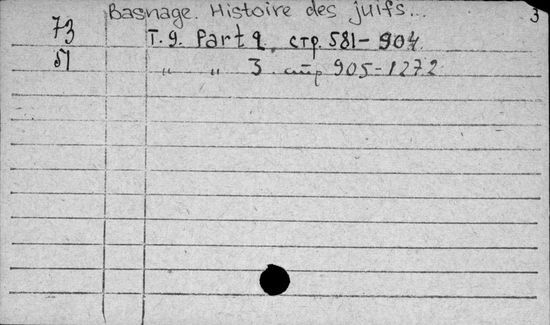 Basnage. Histoire des juifs... 3
73 T. 9. Part 2, стр. 581-904
" " 3. стр 905-1272